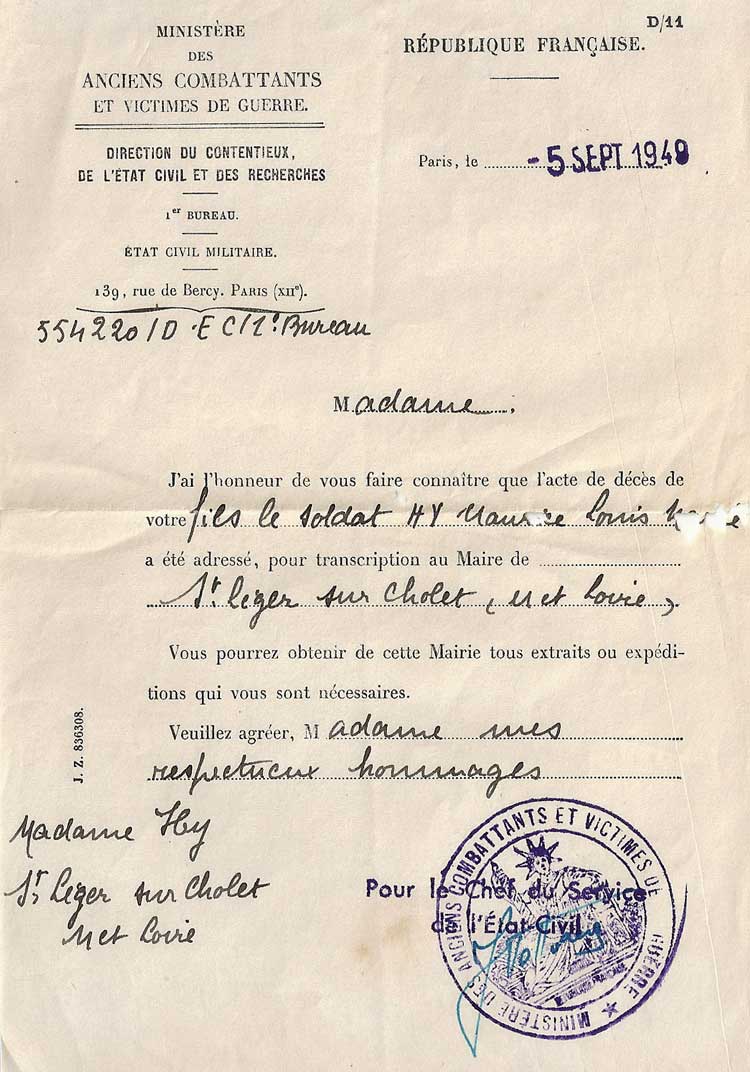 D/11
MINISTÈRE
DES
ANCIENS COMBATTANTS
ET VICTIMES DE GUERRE.
RÉPUBLIQUE FRANÇAISE.
DIRECTION DU CONTENTIEUX,
DE L'ÉTAT CIVIL ET DES RECHERCHES
Paris, le - 5 SEPT 1949
1er BUREAU.
ÉTAT CIVIL MILITAIRE.
139, rue de Bercy. PARIS (XIIe).
554220/D .EC/1er Bureau
Madame.
J'ai l'honneur de vous faire connaître que l'acte de décès de
votre fils le soldat HY Maurice Louis
a été adressé, pour transcription au Maire de
St Léger sur Cholet, (M et Loire)
Vous pourrez obtenir de cette Mairie tous extraits ou expédi-
tions qui vous sont nécessaires.
Veuillez agréer, Madame mes
respectueux hommages
J. Z. 836308.
Madame Hy
St Léger sur Cholet
M et Loire
Pour le Chef du Service
de l'État-Civil
MINISTÈRE DES ANCIENS COMBATTANTS ET VICTIMES DE GUERRE